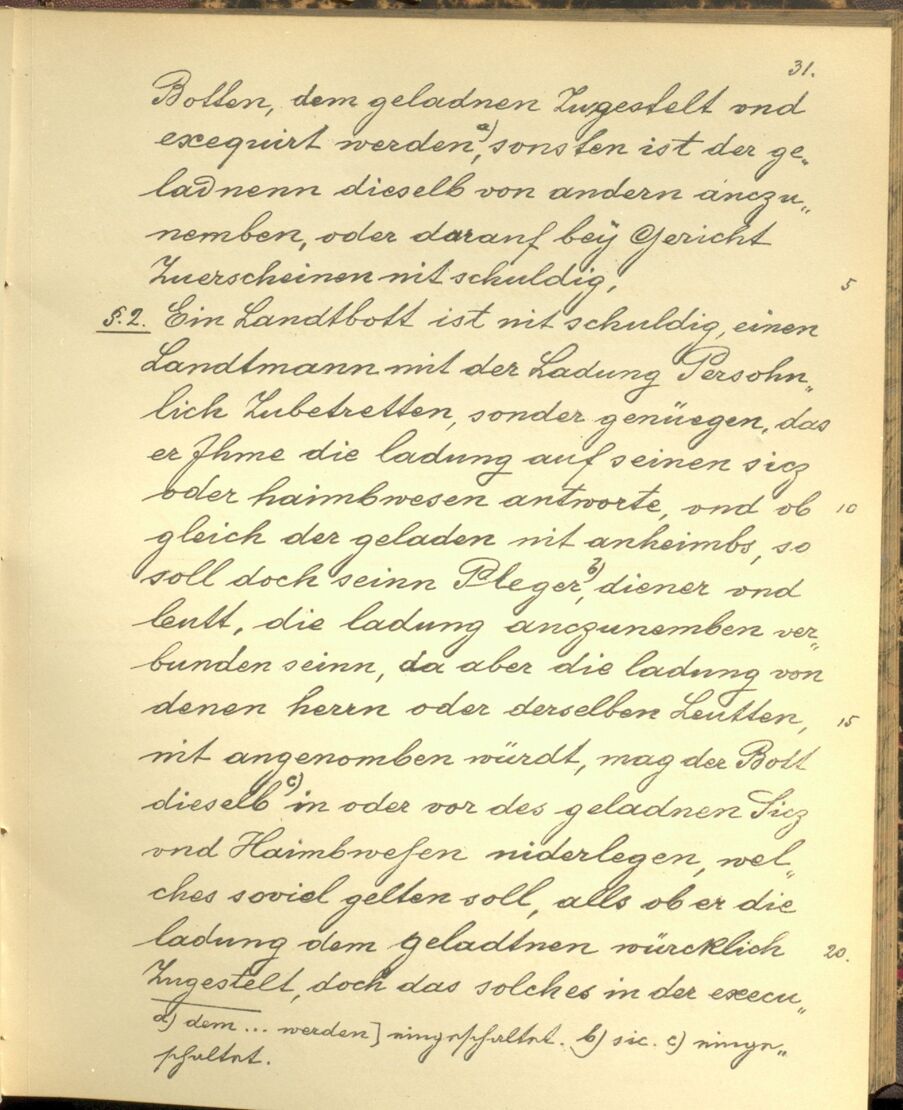 31.
Botten, dem geladnen Zugestelt vnd
exequirt werden a), sonsten ist der ge„
ladnenn dieselb von andern anczu„
nemben, oder darauf beÿ Gericht
Zuerscheinen nit schuldig, 5
§.2. Ein Landtbott ist nit schuldig, einen
Landtmann mit der Ladung Persohn„
lich Zubetretten, sonder genüegen, das
er Jhme die ladung auf seinen sicz
oder haimbwesen antworte, vnd ob 10
gleich der geladen nit anheimbs, so
soll doch seinn Pleger b), diener vnd
leutt, die ladung anczunemben ver„
bunden seinn, da aber die ladung von
denen herrn oder derselben Leutten, 15
nit angenomben würdt, mag der Bott
dieselb c) in oder vor des geladnen Sicz
vnd Haimbwesen niderlegen, wel„
ches soviel gelten soll, alls ob er die
ladung dem geladtnen würcklich 20.
Zugestelt, doch das solches in der execu„
a) dem ... werden] eingeschaltet. b) sic. c) einge„
schaltet.